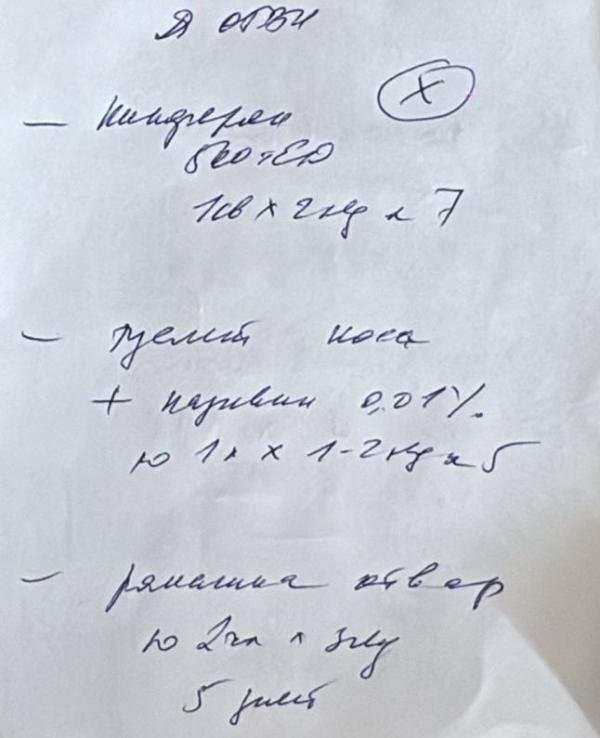 Д ОРВИ
X
— Кипферон
500 т ЕД
1св x 2 р/д x 7
— туалет носа
+ називин 0,01%
по 1к x 1-2 р/д x 5
— ромашка отвар
по 2чл x 3 р/д
5 дней